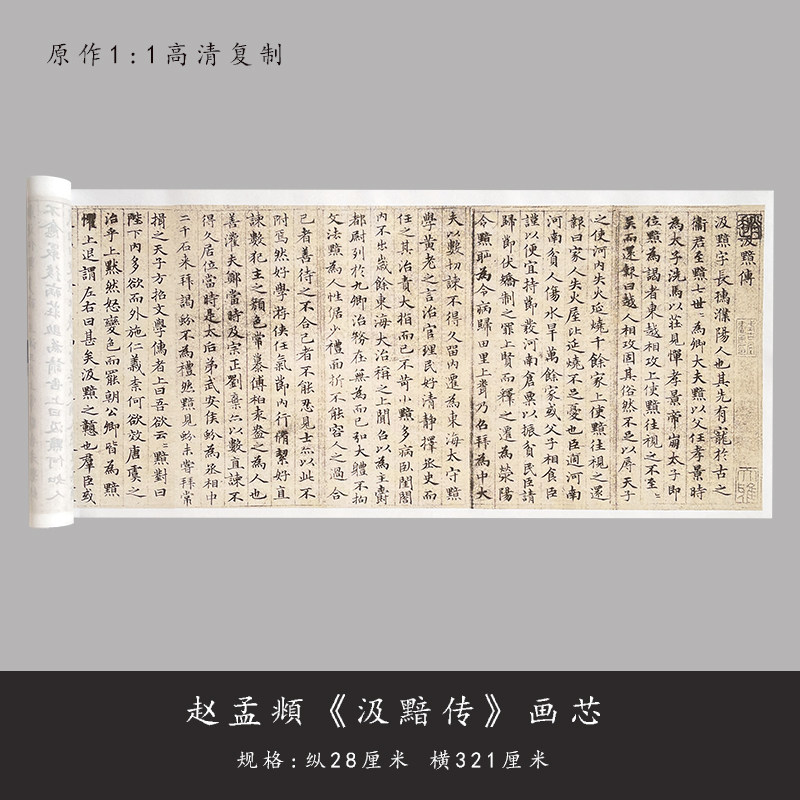 原作1:1高清复制
汲黯傳
汲黯字長孺濮陽人也其先有寵於古之
衛君至黯七世〻為卿大夫黯以父任孝景時
為太子洗馬以莊見憚孝景帝崩太子即
位黯為謁者東越相攻上使黯往視之不至〻
吳而還報曰越人相攻固其俗然不足以辱天子
之使河內失火延燒千餘家上使黯往視之還
報曰家人失火屋比延燒不足憂也臣過河南
河南貧人傷水旱萬餘家或父子相食臣
謹以便宜持節發河南倉粟以振貧民臣請
歸節伏矯制之罪上賢而釋之遷為滎陽
令黯恥為令病歸田里上聞乃召拜為中大
夫以數切諫不得久留內遷為東海太守黯
學黃老之言治官理民好清靜擇丞史而
任之其治責大指而已不苛小黯多病臥閨閣
內不出歲餘東海大治稱之上聞召以為主爵
都尉列於九卿治務在無為而已弘大體不拘
文法黯為人性倨少禮面折不能容人之過合
己者善待之不合己者不能忍見士亦以此不
附焉然好學游俠任氣節內行脩絜好直
諫數犯主之顏色常慕傅柏袁盎之為人也
善灌夫鄭當時及宗正劉棄亦以數直諫不
得久居位當時是太后弟武安侯蚡為丞相中
二千石來拜謁蚡不為禮然黯見蚡未嘗拜常
揖之天子方招文學儒者上曰吾欲云〻黯對曰
陛下內多欲而外施仁義柰何欲效唐虞之
治乎上默然怒變色而罷朝公卿皆為黯
懼上退謂左右曰甚矣汲黯之戇也羣臣或
赵孟頫《汲黯传》画芯
规格:纵28厘米 横321厘米